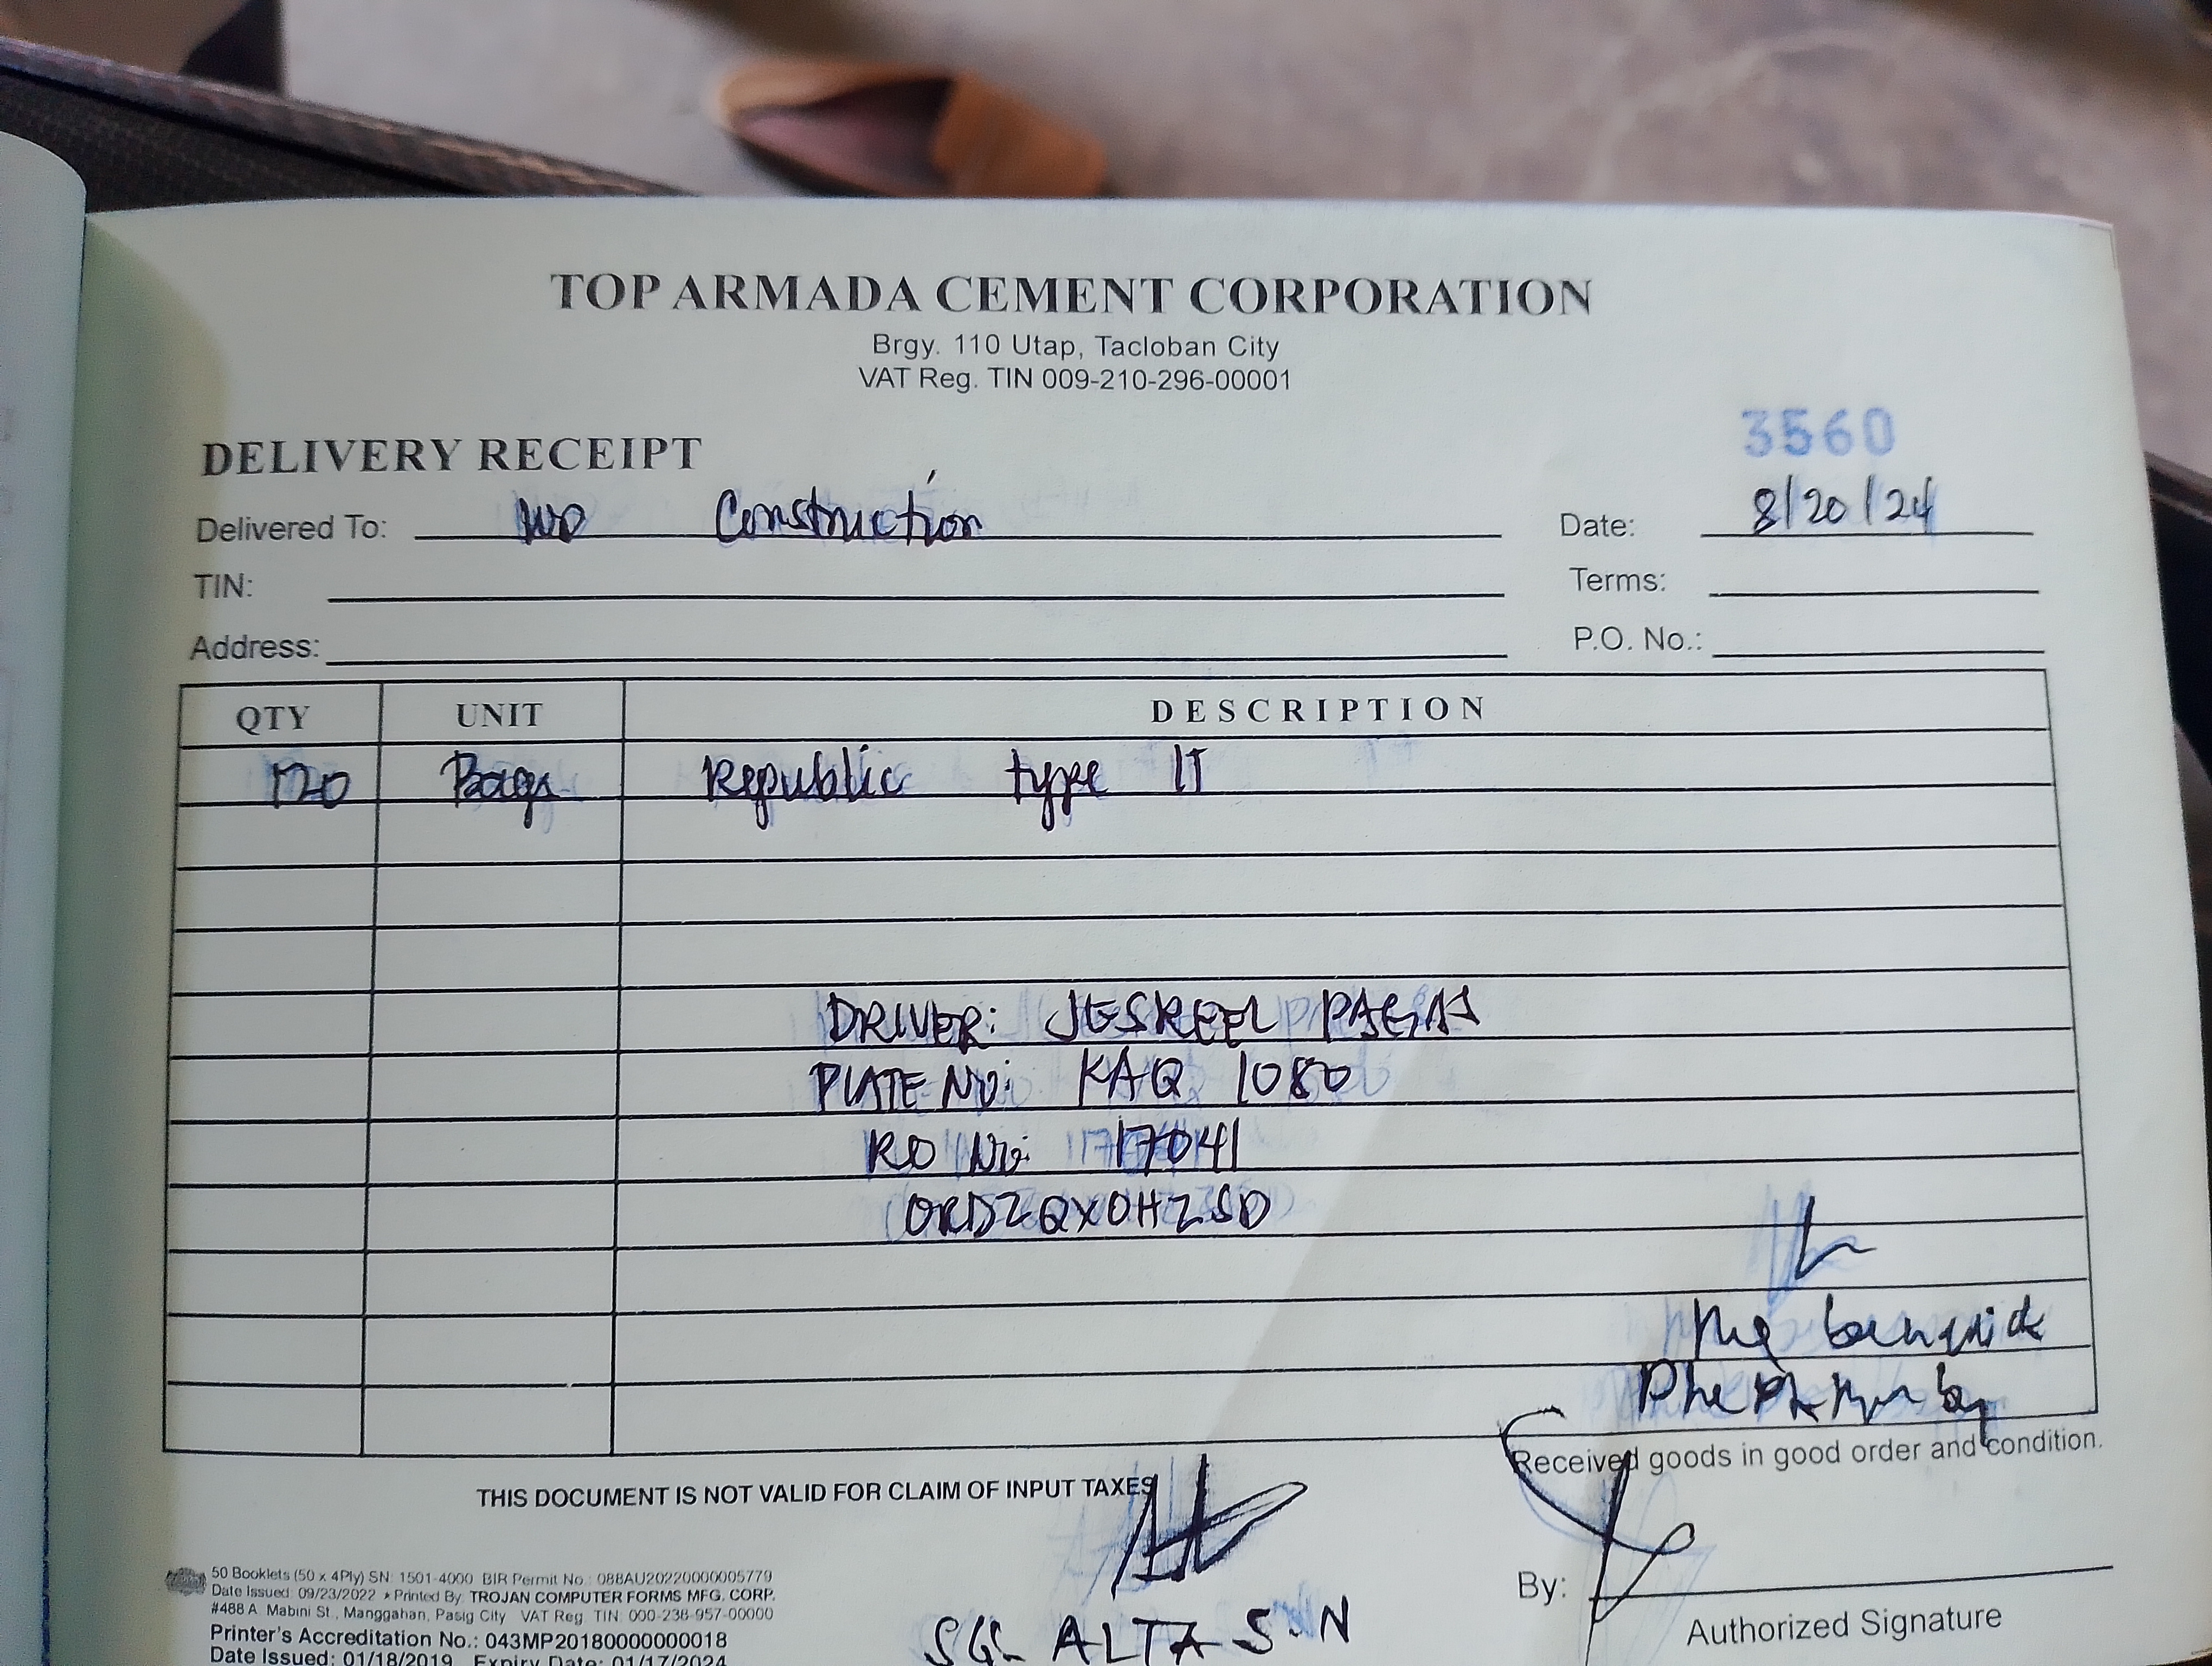 TOP ARMADA CEMENT CORPORATION
Brgy. 110 Utap, Tacloban City
VAT Reg. TIN 009-210-296-00001
3560
DELIVERY RECEIPT
Delivered To: Construction Date: 8/20/24
TIN: Terms:
Address: P.O. No.:
QTY UNIT DESCRIPTION
120 Bags Republic type 1T
DRIVER: JESREEL PAGAS
PLATE No: KAQ 1080
RO No: 17041
ORDZQXOHZSD
Received goods in good order and condition.
THIS DOCUMENT IS NOT VALID FOR CLAIM OF INPUT TAXES
50 Booklets (50 x 4Ply) SN: 1501-4000 BIR Permit No.: 088AU20220000005779
Date Issued: 09/23/2022 * Printed By: TROJAN COMPUTER FORMS MFG. CORP.
#488 A. Mabini St., Manggahan, Pasig City VAT Reg. TIN: 000-238-957-00000
Printer's Accreditation No.: 043MP20180000000018
Date Issued: 01/18/2019 Expiry Date: 01/17/2024
By:
Authorized Signature
ALTA